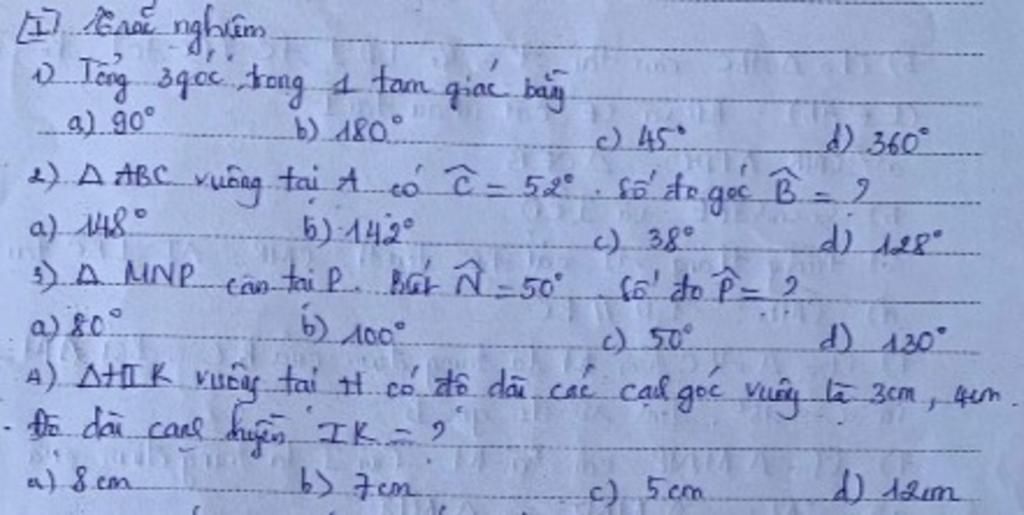 I) Trắc nghiệm
1) Tổng 3 góc trong 1 tam giác bằng
a) 90° b) 180° c) 45° d) 360°
2) Δ ABC vuông tại A có Ĉ = 52°. Số đo góc B̂ = ?
a) 148° b) 142° c) 38° d) 128°
3) Δ MNP cân tại P. Biết N̂ = 50°. Số đo P̂ = ?
a) 80° b) 100° c) 50° d) 130°
4) ΔHIK vuông tại H có độ dài các cạnh góc vuông là 3cm, 4cm.
Độ dài cạnh huyền IK = ?
a) 8cm b) 7cm c) 5cm d) 12cm